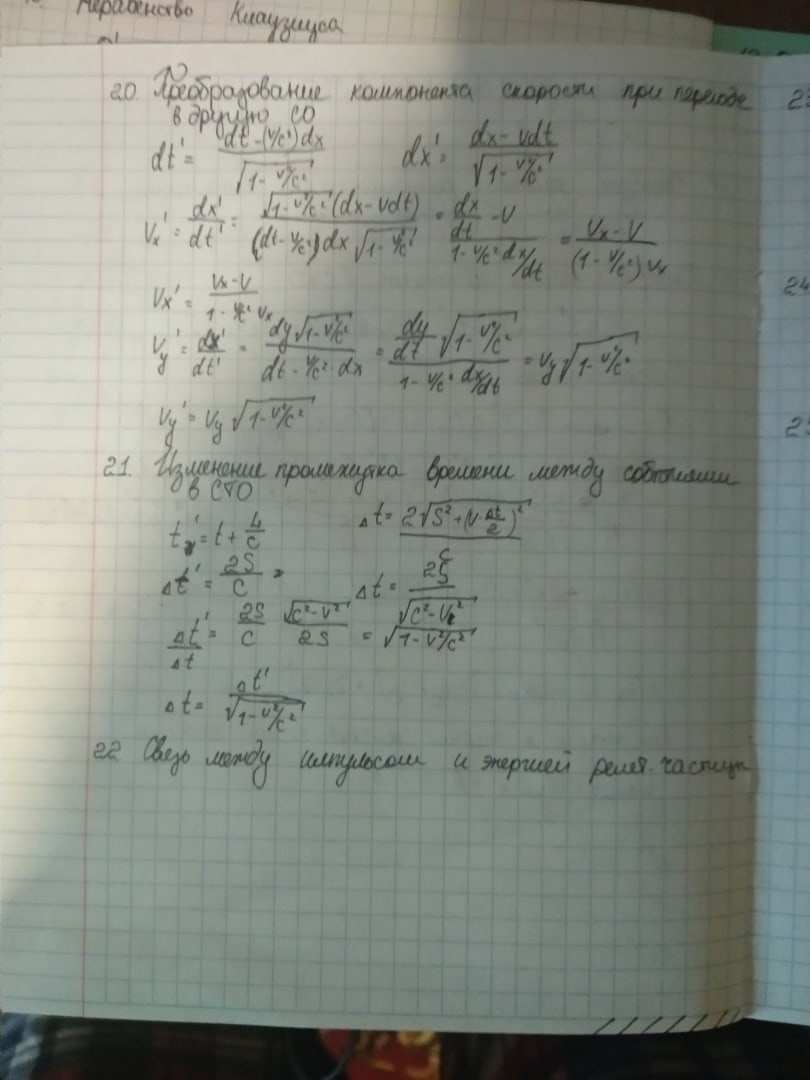 Неравенство Клаузиуса
20. Преобразование компонента скорости при переходе
в другую СО
dt' = (dt - (v/c²)dx) / √(1 - v²/c²)   dx' = (dx - vdt) / √(1 - v²/c²)
Vx' = dx'/dt' = √(1 - v²/c²) (dx - vdt) / (dt - v/c²)dx √(1 - v²/c²) = (dx/dt - V) / (1 - v/c² dx/dt) = (Vx - V) / (1 - v/c²)Vx
Vx' = (Vx - V) / (1 - v/c² Vx)
Vy' = dx'/dt' = dy√(1 - v²/c²) / (dt - v/c² · dx) = (dy/dt √(1 - v²/c²)) / (1 - v/c² dx/dt) = Vy √(1 - v²/c²)
Vy' = Vy √(1 - v²/c²)
21. Изменение промежутка времени между событиями
в СТО
t' = t + L/c   Δt = 2√(S² + (V · Δt/2)²) / c
Δt' = 2S/c   Δt = 2S / √(c² - V²)
Δt'/Δt = 2S/c √(c² - V²)/2S = √(1 - V²/c²)
Δt = Δt' / √(1 - v²/c²)
22 Связь между импульсом и энергией релят. частицы
23
24